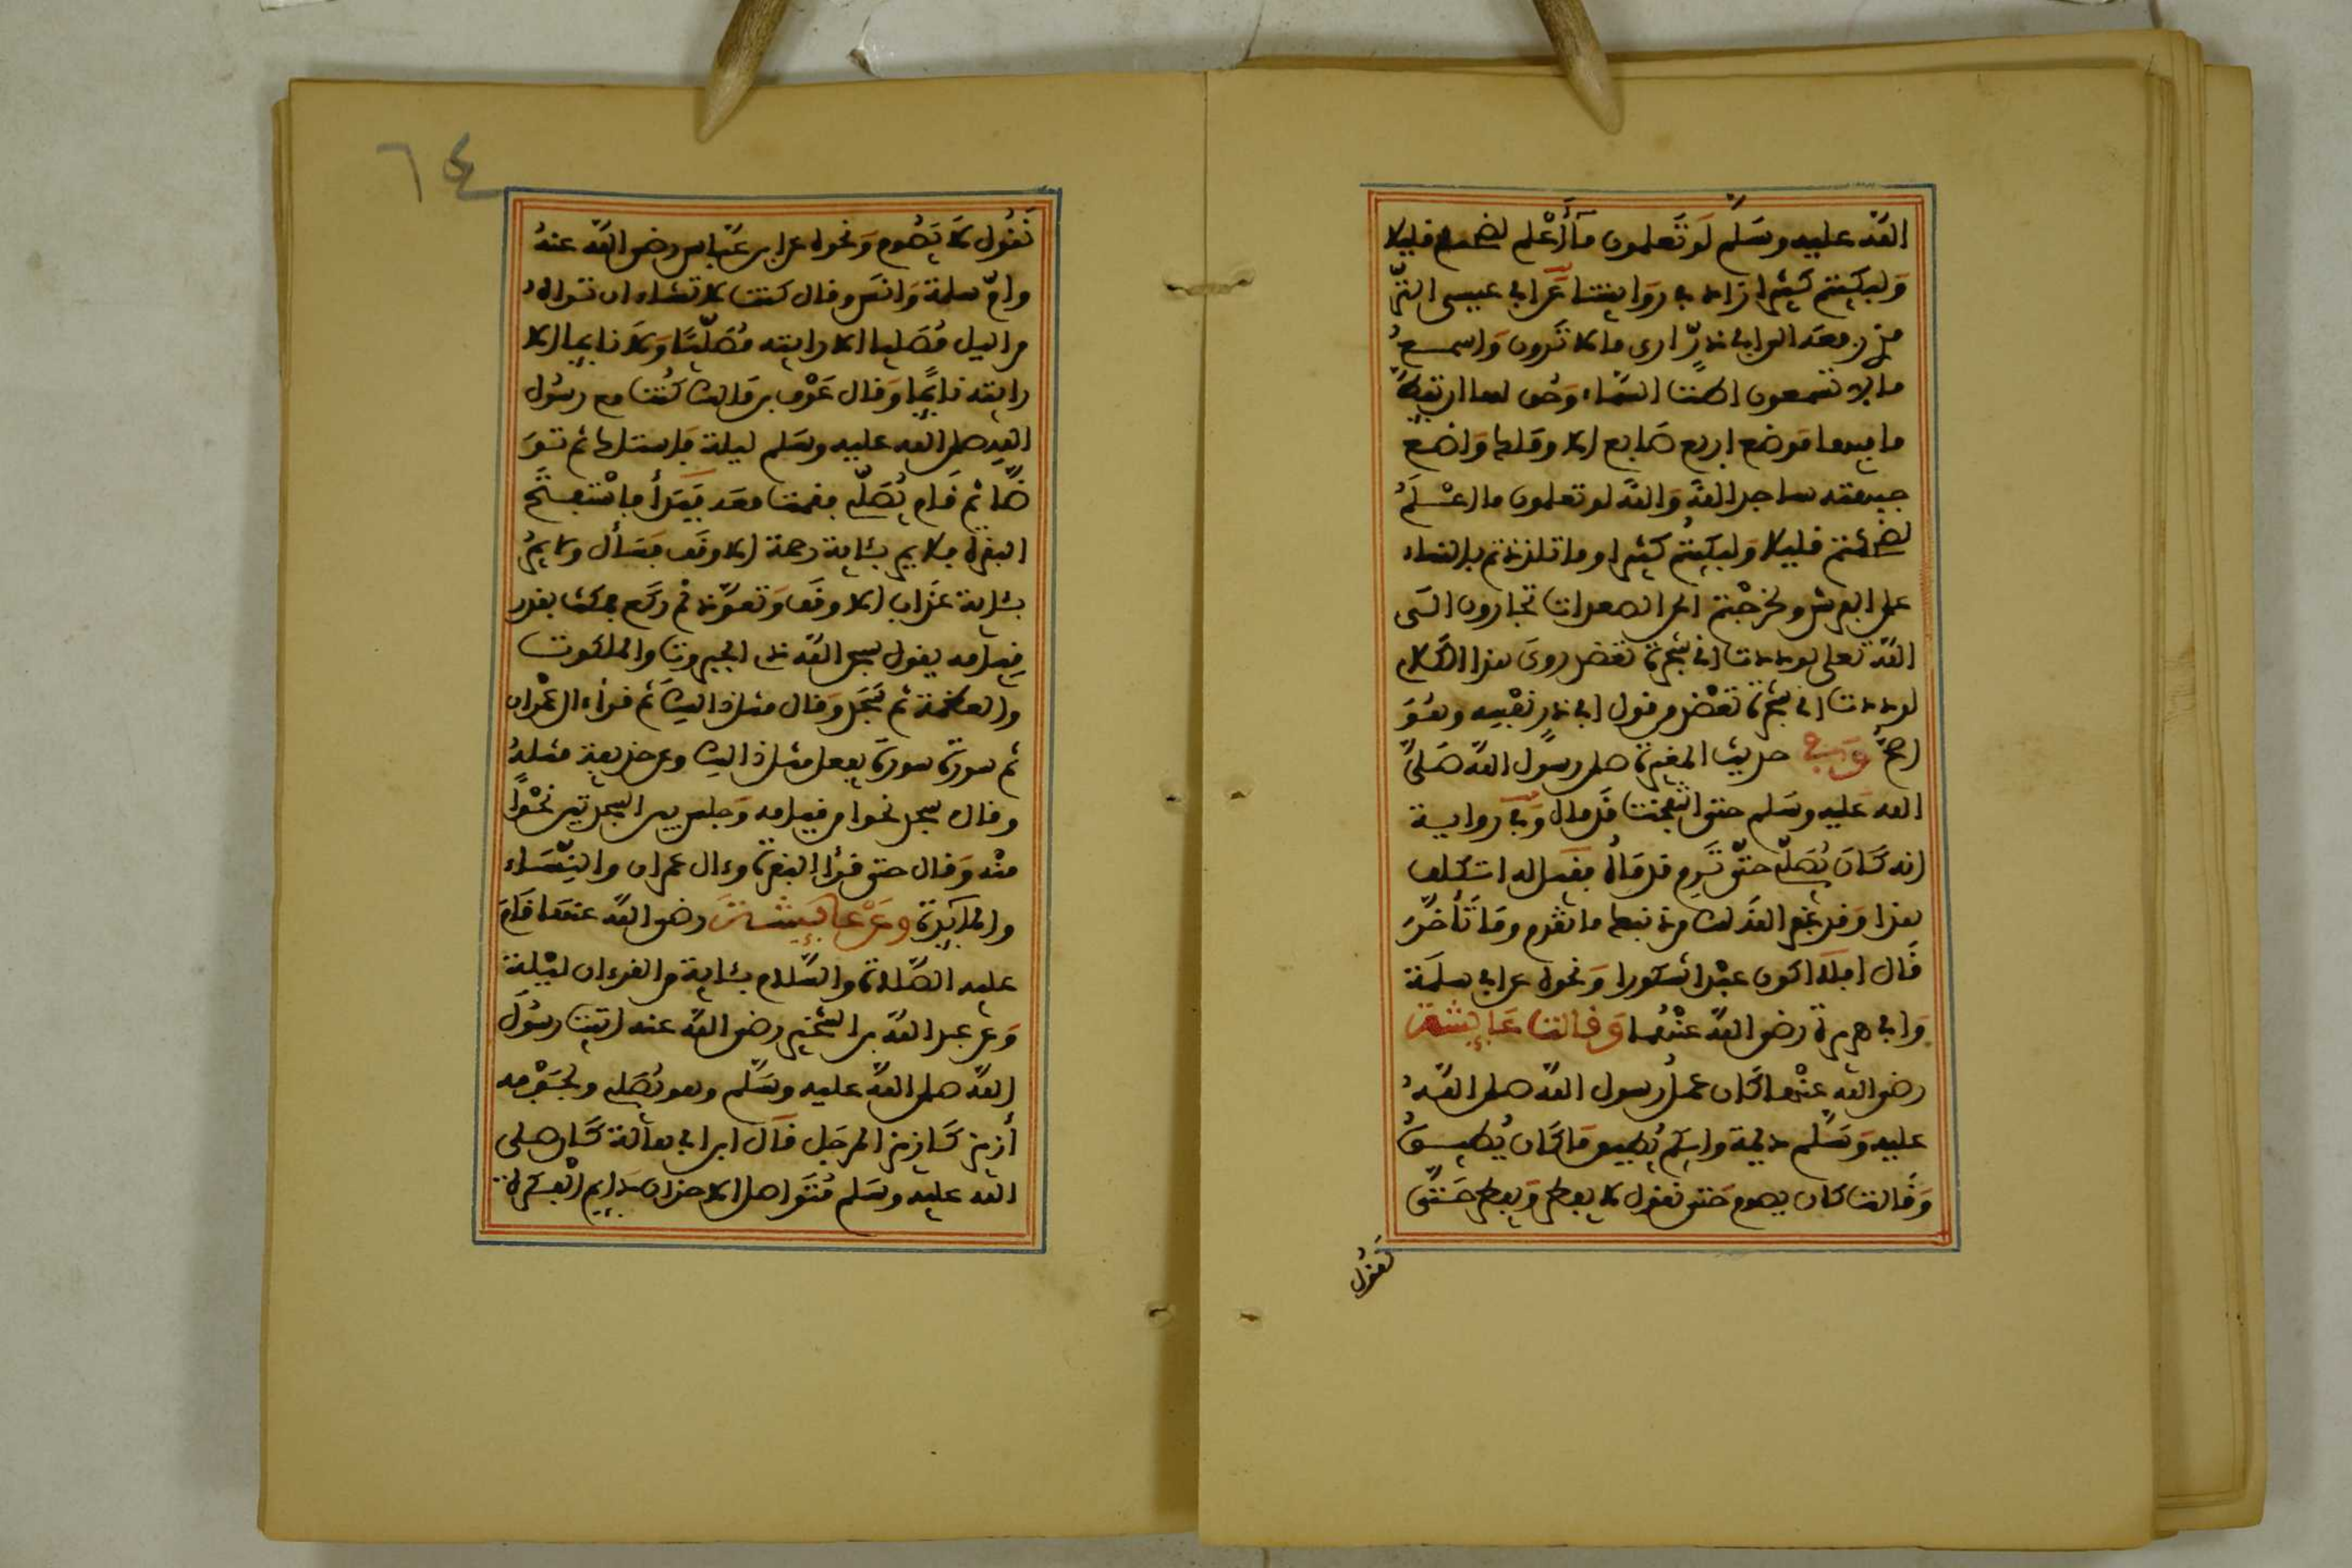 الله عليه وسلم لو تعلمون ما أعلم لضحكتم قليلا
ولبكيتم كثيرا زاد في روايتنا عن ابي عيسى الترّ
مذي رفعه الى ابي ذرّ اري ما لا ترون واسمع
ما لا تسمعون اطت السماء وحق لها ان تئط
ما فيها موضع اربع اصابع الا وملك واضع
جبهته ساجد الله والله لو تعلمون ما اعلم
لضحكتم قليلا ولبكيتم كثيرا وما تلذذتم بالنساء
على الفرش ولخرجتم الى الصعدات تجارون الى
الله تعلى لوددت اني شجرة تعضد روي هذا الكلام
لوددت اني شجرة تعضد من قول ابي ذر نفسه وهو
اصح وفي حديث المغيرة صلى رسول الله صلى
الله عليه وسلم حتى انتفخت قدماه وفي رواية
انه كان يصلي حتى ترم قدماه فقيل له اتتكلف
هذا وقد غفر الله لك من ذنبك ما تقدم وما تأخر
قال افلا اكون عبدا شكورا ونحوه عن ابي سلمة
وابي هريرة رضي الله عنهما وقالت عائشة
رضي الله عنها كان عمل رسول الله صلى الله
عليه وسلم ديمة وايكم يطيق ما كان يطيق
وقالت كان يصوم حتى نقول لا يفطر ويفطر حتى
نقول
٦٤
نقول لا يصوم ونحوه عن ابن عباس رضي الله عنه
وام سلمة وانس وقال كنت لا تشاء ان تراه
من اليل مصليا الا رايته مصليا ولا نايما الا
رايته نايما وقال عوف بن مالك كنت مع رسول
الله صلى الله عليه وسلم ليلة فاستاك ثم تو
ضأ ثم قام يصلي فقمت معه فبدأ فاستفتح
البقرة فلا يمر بئاية رحمة الا وقف فسأل ولا يمر
بئاية عذاب الا وقف وتعوذ ثم ركع فمكث بقدر
قيامه يقول سبحن الله ذي الجبروت والملكوت
والعظمة ثم سجد وقال مثل ذالك ثم قرأ ءال عمران
ثم سورة سورة يفعل مثل ذالك وعن حذيفة مثله
وقال سجد نحوا من قيامه وجلس بين السجدتين نحوا
منه وقال حتى قرأ البقرة وءال عمران والنساء
والمايدة وعن عائشة رضي الله عنها قام
عليه الصلاة والسلام بئاية من القرءان ليلة
وعن عبد الله بن الشخير رضي الله عنه اتيت رسول
الله صلى الله عليه وسلم وهو يصلي ولجوفه
أزيز كازيز المرجل قال ابن ابي هالة كان صلى
الله عليه وسلم متواصل الاحزان دايم الفكرة